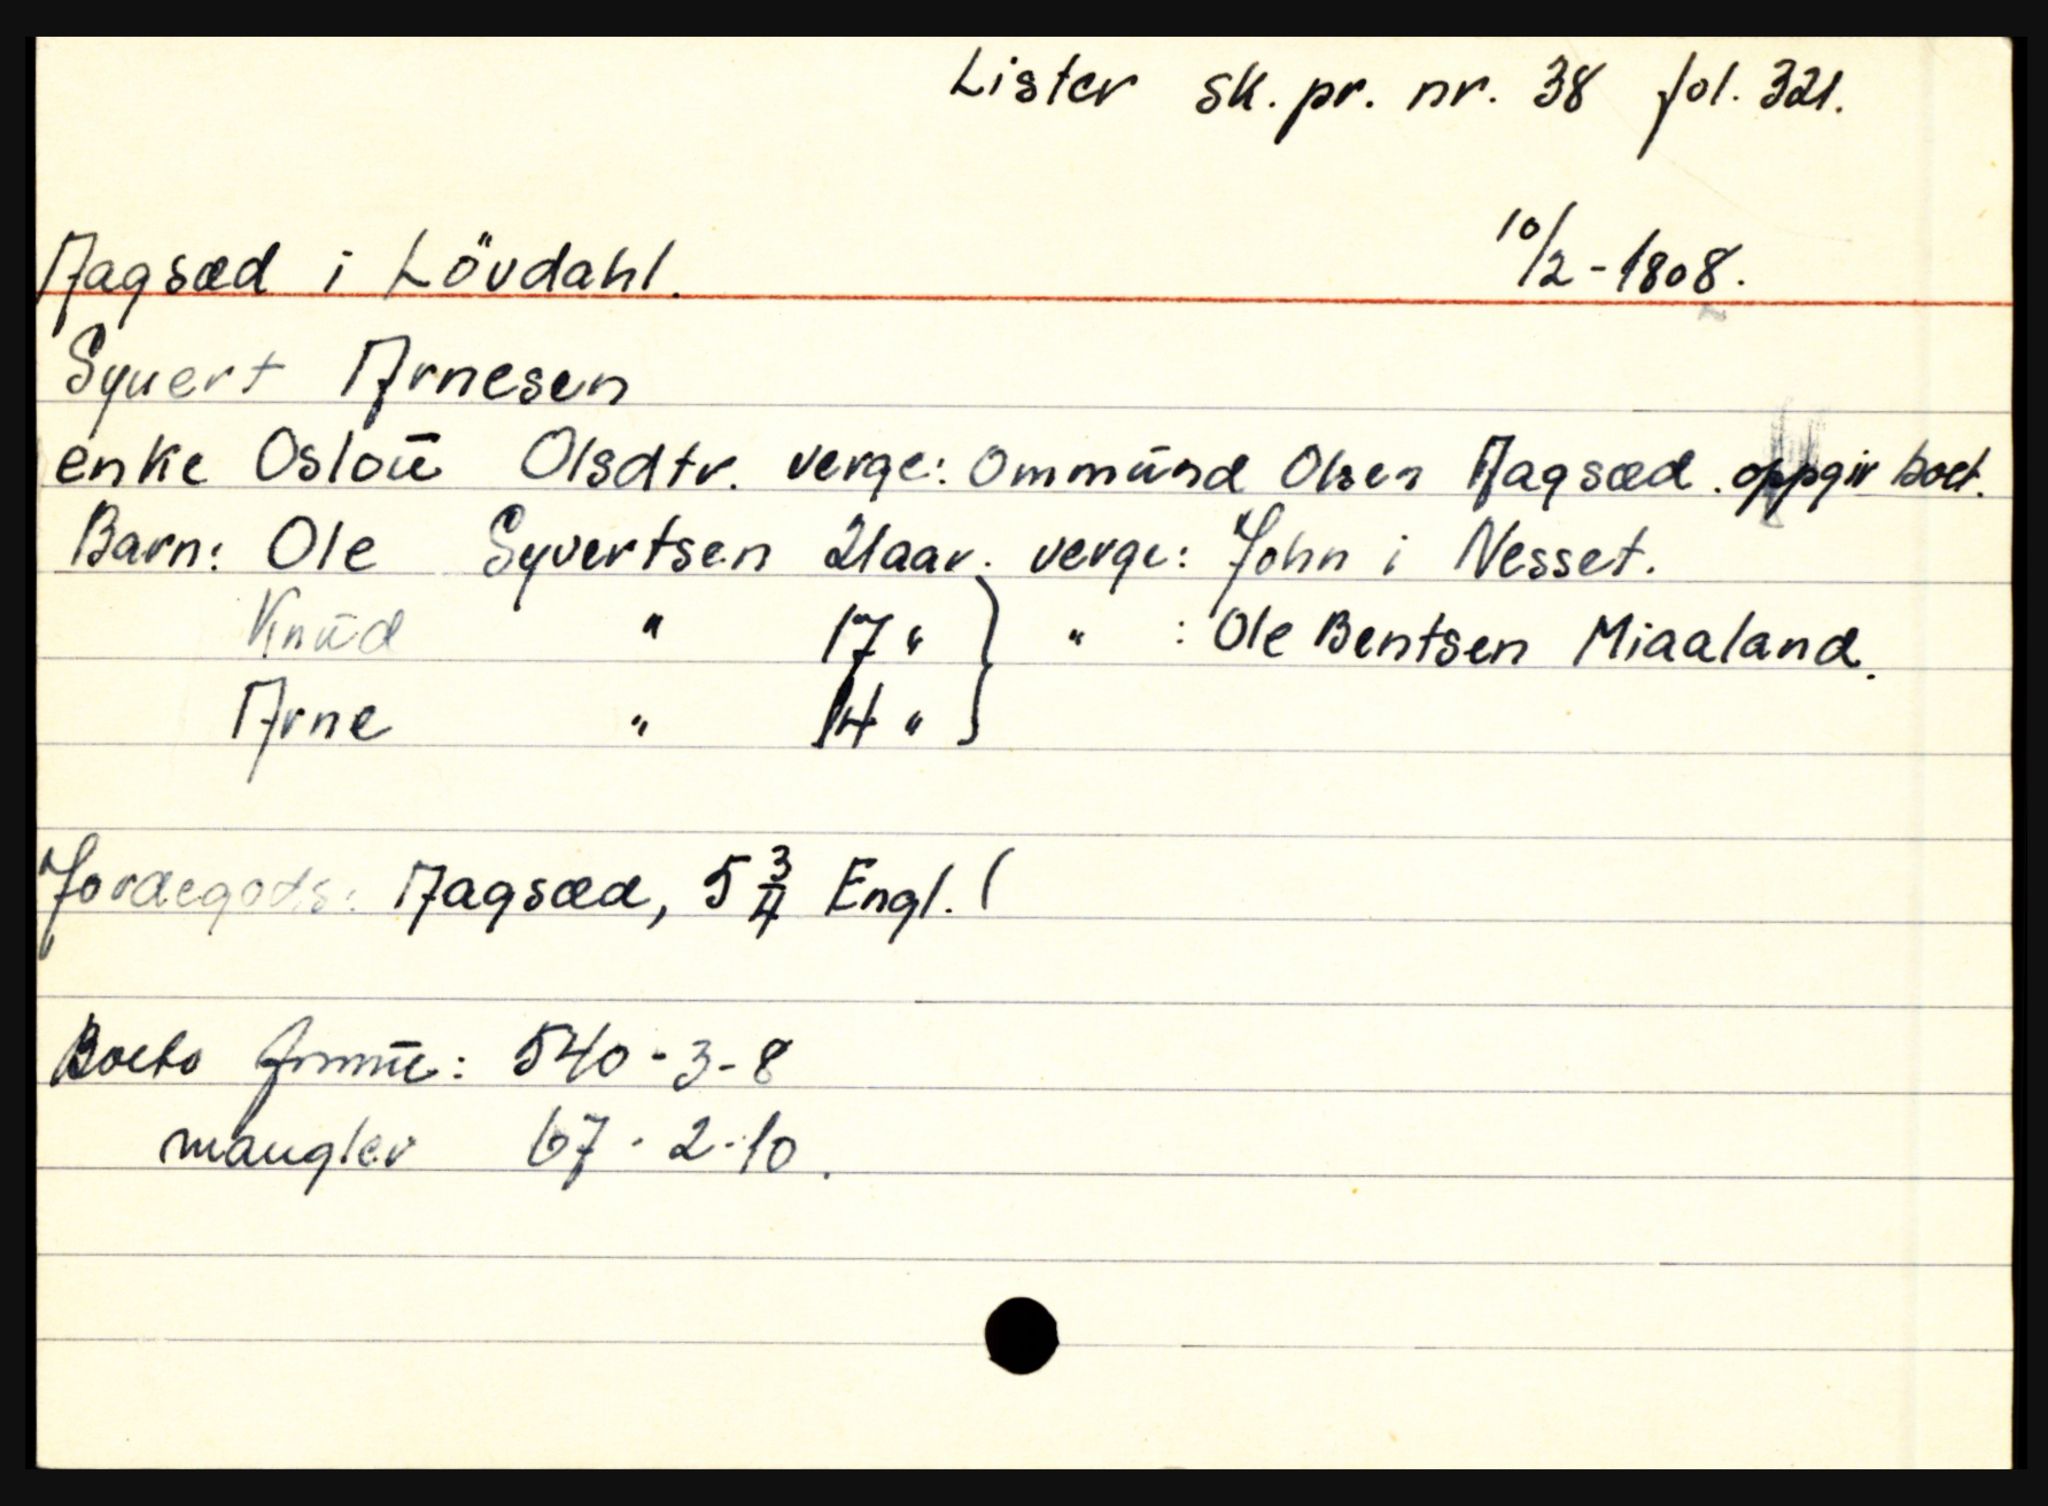 Lister sk. pr. nr. 38 fol. 321.
Aagsæd i Lövdahl. 10/2 - 1808.
Syvert Arnesen
enke Osloū Olsdtr. verge: Ommūnd Olsen Aagsæd. oppgir boet.
Barn: Ole Syvertsen 21 aar. verge: John i Nesset.
Knūd " 17 " } " : Ole Bentsen Miaaland.
Arne " 14 " }
Jordegods: Aagsæd, 5 3/4 Engl. (
Boets : 540 - 3 - 8
mangler 67 - 2 - 10.